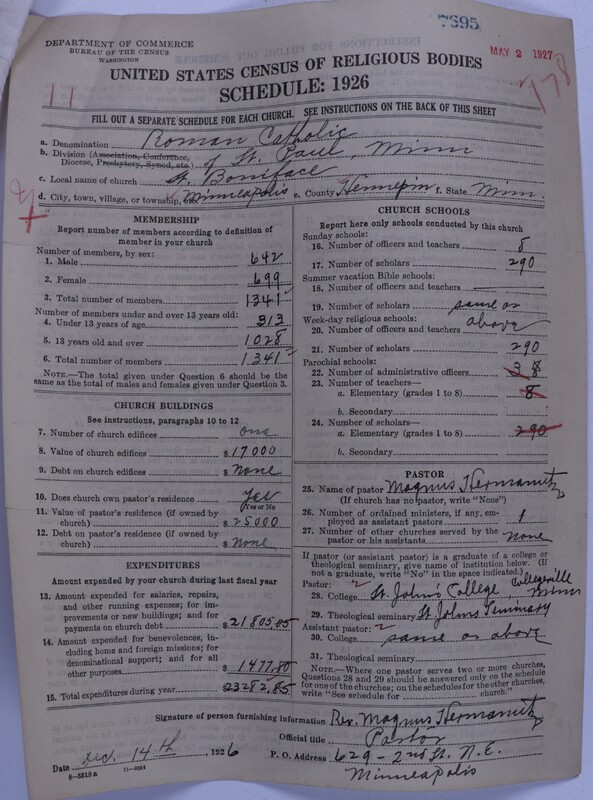 7695
DEPARTMENT OF COMMERCE
BUREAU OF THE CENSUS
WASHINGTON
MAY 2 1927
178
11
UNITED STATES CENSUS OF RELIGIOUS BODIES
SCHEDULE: 1926
FILL OUT A SEPARATE SCHEDULE FOR EACH CHURCH. SEE INSTRUCTIONS ON THE BACK OF THIS SHEET
a. Denomination Roman Catholic
b. Division (Association, Conference, Diocese, Presbytery, Synod, etc.) of St. Paul, Minn
c. Local name of church St. Boniface
d. City, town, village, or township, Minneapolis e. County Hennepin f. State Minn.
MEMBERSHIP
Report number of members according to definition of
member in your church
Number of members, by sex:
1. Male 642
2. Female 699
3. Total number of members 1341
Number of members under and over 13 years old:
4. Under 13 years of age 313
5. 13 years old and over 1028
6. Total number of members 1341
NOTE.—The total given under Question 6 should be
same as the total of males and females given under Question 3.
CHURCH BUILDINGS
See instructions, paragraphs 10 to 12
7. Number of church edifices one
8. Value of church edifices $ 17000
9. Debt on church edifices $ None
10. Does church own pastor's residence Yes
Yes or No
11. Value of pastor's residence (if owned by
church) $ 25000
12. Debt on pastor's residence (if owned by
church) $ None
EXPENDITURES
Amount expended by your church during last fiscal year
13. Amount expended for salaries, repairs,
and other running expenses; for im-
provements or new buildings; and for
payments on church debt $ 21805.05
14. Amount expended for benevolences, in-
cluding home and foreign missions; for
denominational support; and for all
other purposes $ 1477.80
15. Total expenditures during year $ 23282.85
CHURCH SCHOOLS
Report here only schools conducted by this church
Sunday schools:
16. Number of officers and teachers 8
17. Number of scholars 290
Summer vacation Bible schools:
18. Number of officers and teachers
19. Number of scholars same as
Week-day religious schools:
20. Number of officers and teachers above
21. Number of scholars 290
Parochial schools:
22. Number of administrative officers 3 8
23. Number of teachers—
a. Elementary (grades 1 to 8) 8
b. Secondary
24. Number of scholars—
a. Elementary (grades 1 to 8) 290
b. Secondary
PASTOR
25. Name of pastor Magnus Hermanutz
(If church has no pastor, write "None")
26. Number of ordained ministers, if any, em-
ployed as assistant pastors 1
27. Number of other churches served by the
pastor or his assistants None
If pastor (or assistant pastor) is a graduate of a college or
theological seminary, give name of institution below. (If
not a graduate, write "No" in the space indicated.)
Pastor:
28. College St. John's College, Collegeville Minn
29. Theological seminary St Johns Seminary
Assistant pastor:
30. College same as above
31. Theological seminary
NOTE.—Where one pastor serves two or more churches,
Questions 28 and 29 should be answered only on the schedule
for one of the churches; on the schedules for the other churches,
write "See schedule for church."
Signature of person furnishing information Rev. Magnus Hermanutz
Official title Pastor
Date Dec. 14th, 1926
P. O. Address 629 - 2nd St. N.E.
Minneapolis
8-5515a 11-9684